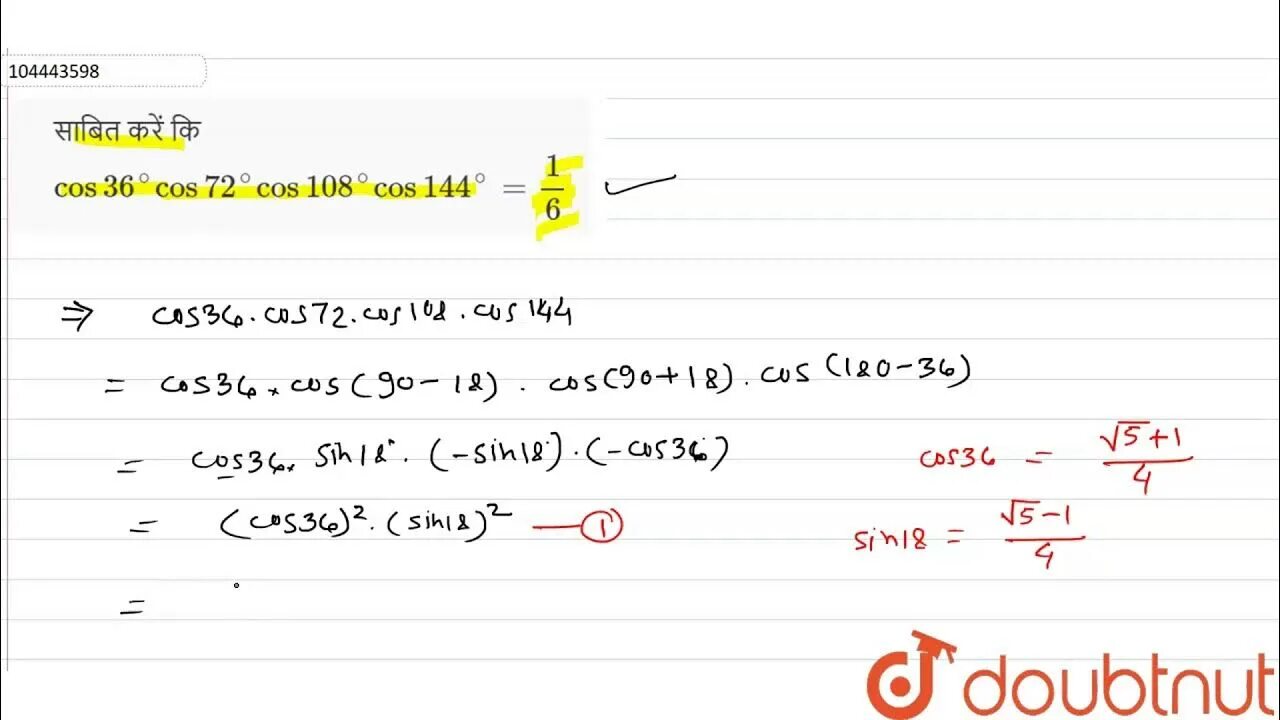 104443598
साबित करें कि
cos 36° cos 72° cos 108° cos 144° = 1/6
⇒ cos36 . cos72 . cos108 . cos 144
= cos36 × cos (90 - 18) . cos(90+18) . cos (180-36)
= cos36 × sin18° . (-sin18°) . (-cos36°)
= (cos36)² . (sin18)² — ①
=
cos36 = √5+1/4
sin18 = √5-1/4
doubtnut